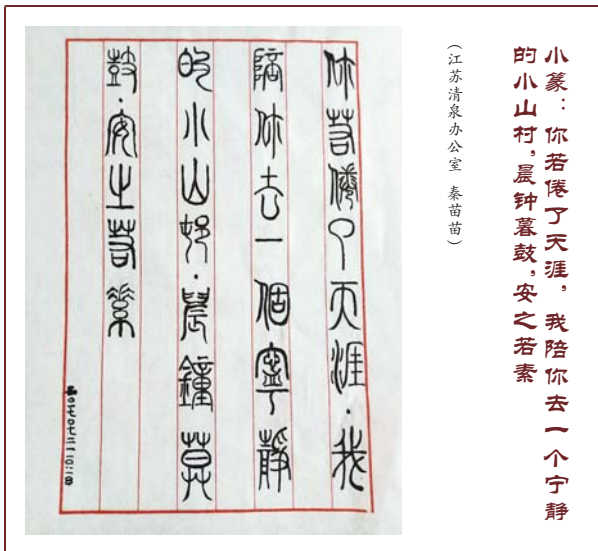 小篆：你若倦了天涯，我陪你去一个宁静
的小山村，晨钟暮鼓，安之若素
（江苏清泉办公室 秦苗苗）
你若倦了天涯·我
陪你去一個寧靜
的小山邨·晨鐘莫
鼓·安之若素